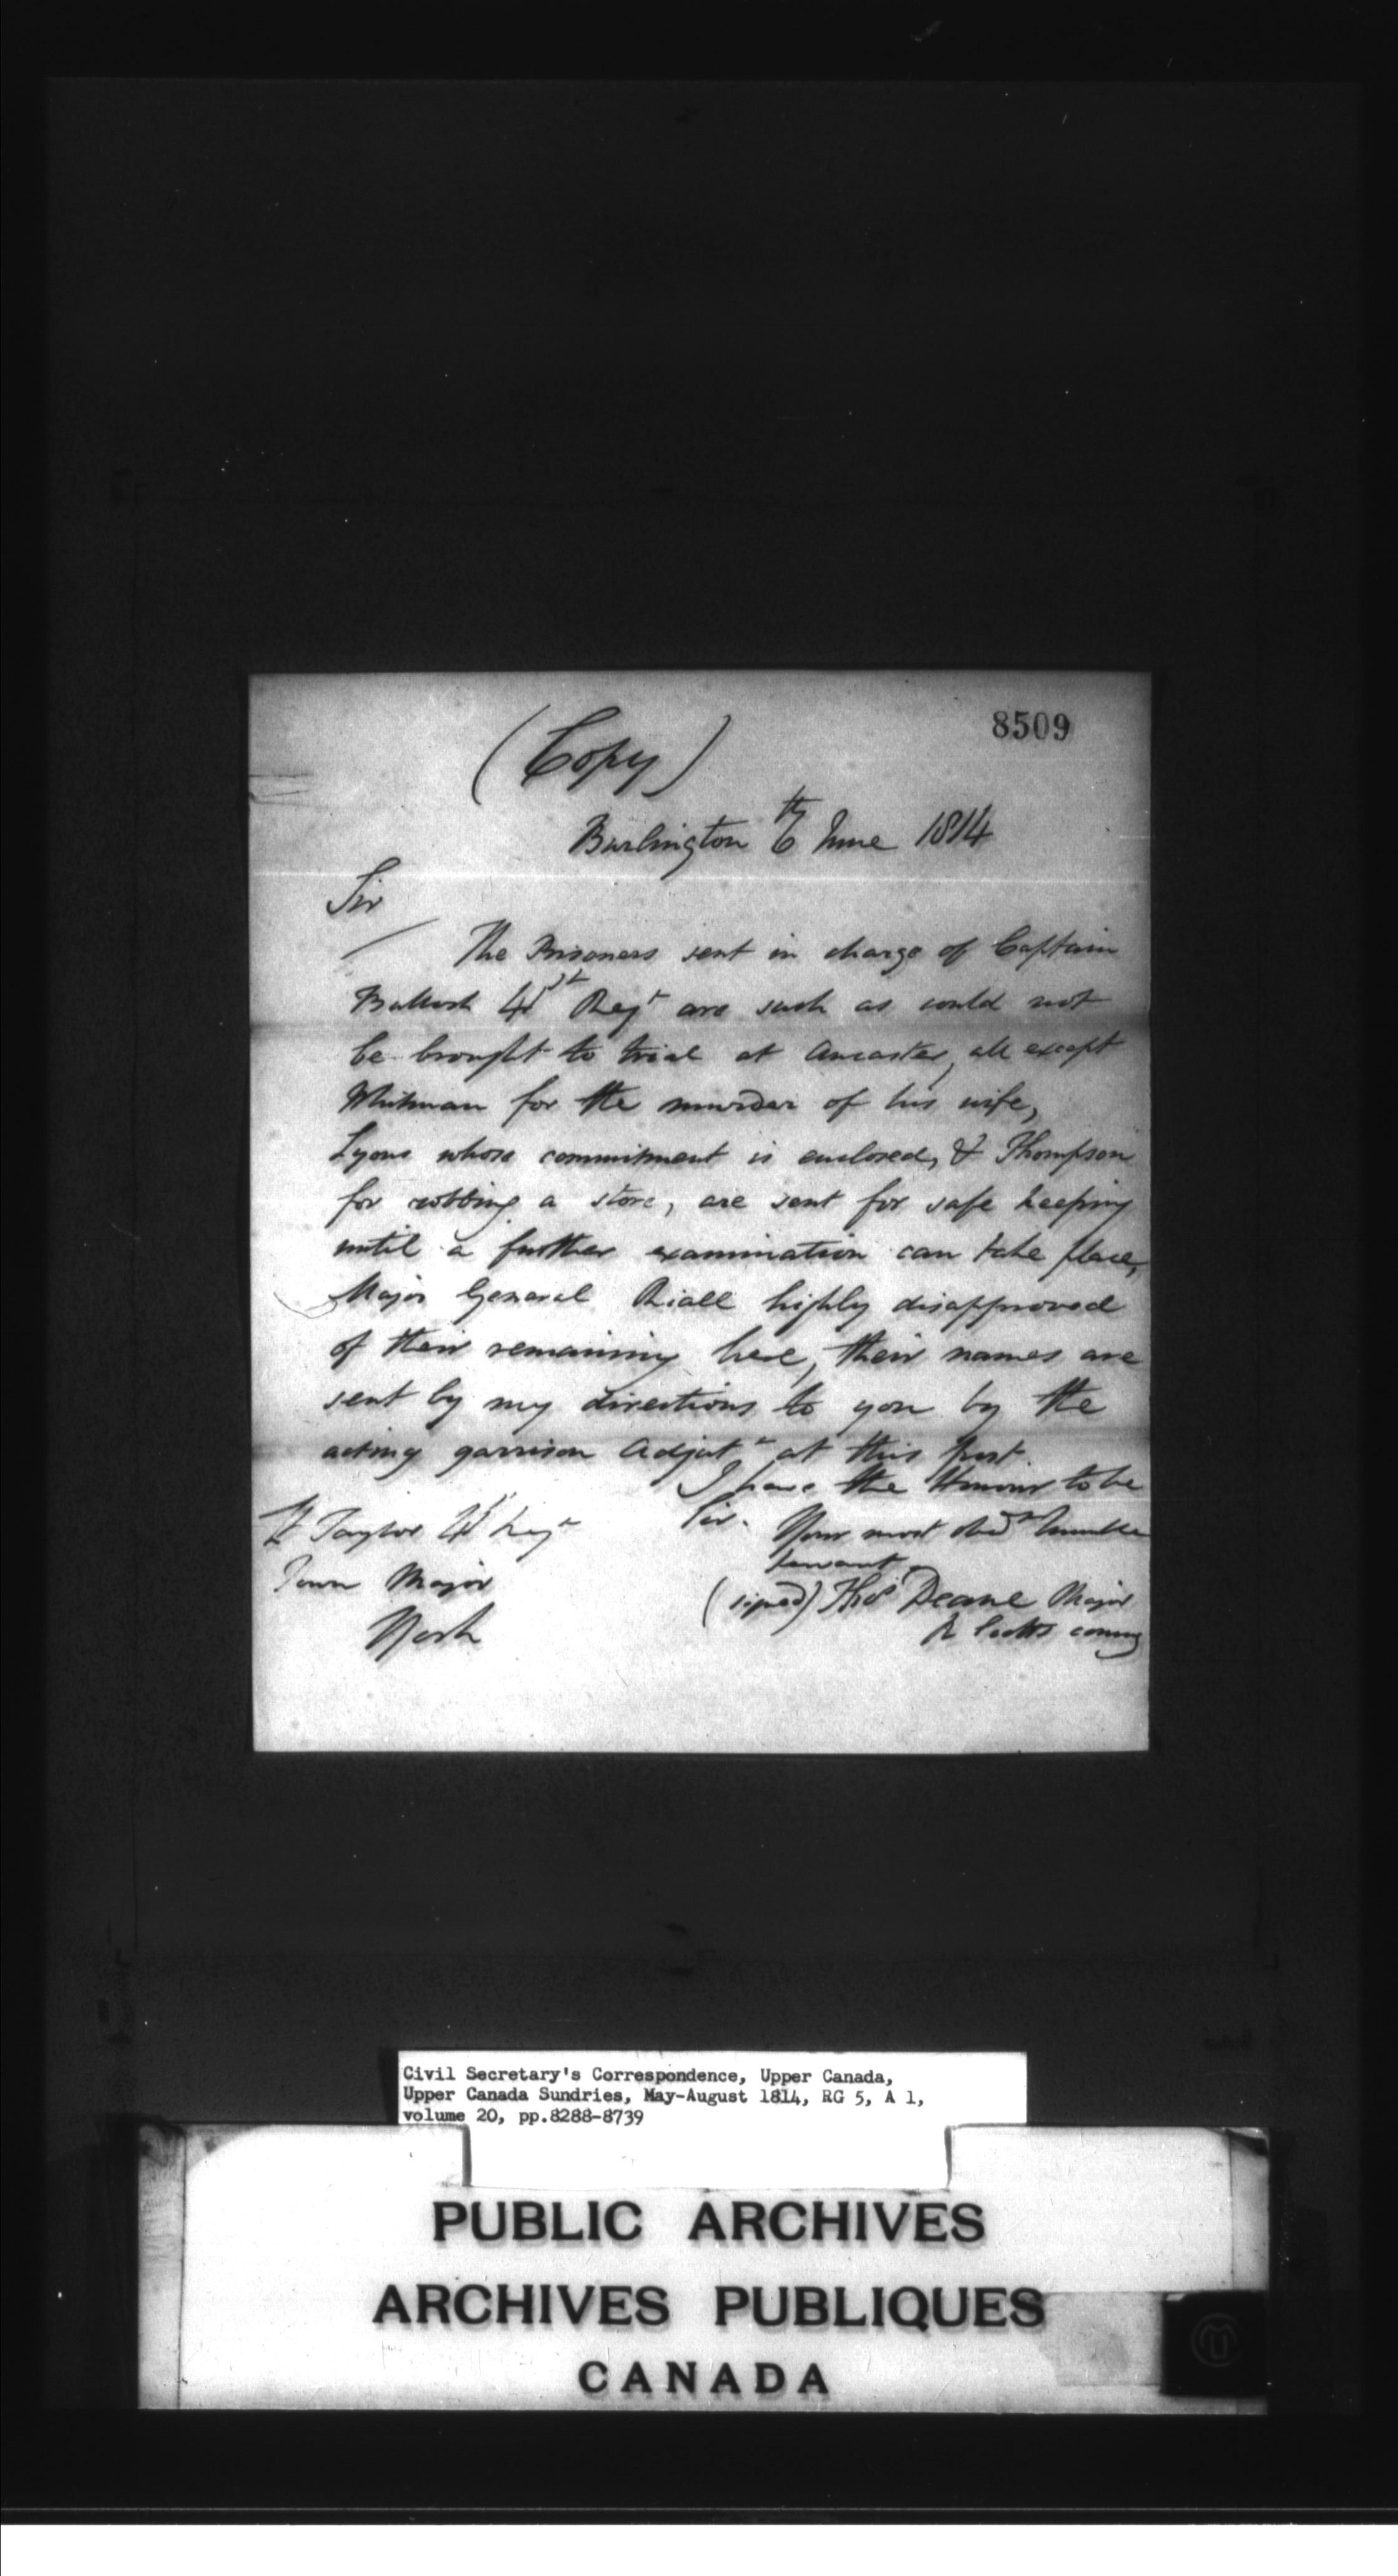 8509
(Copy)
Burlington 6th June 1814
Sir
The Prisoners sent in charge of Captain
Bullock 41st Regt are such as could not
be brought to trial at Ancaster, all except
Whitman for the murder of his wife,
Lyons whose commitment is enclosed, & Thompson
for robbing a store, are sent for safe keeping
until a further examination can take place,
Major General Riall highly disapproved
of their remaining here, their names are
sent by my directions to you by the
acting garrison Adjutt at this post.
I have the Honour to be
Sir. Your most obedt humble
servant
(signed) Thos Deane Major
R Scotts comg
Lt Taylor 41st Regt
Town Major
York
Civil Secretary's Correspondence, Upper Canada,
Upper Canada Sundries, May-August 1814, RG 5, A 1,
volume 20, pp.8288-8739
PUBLIC ARCHIVES
ARCHIVES PUBLIQUES
CANADA